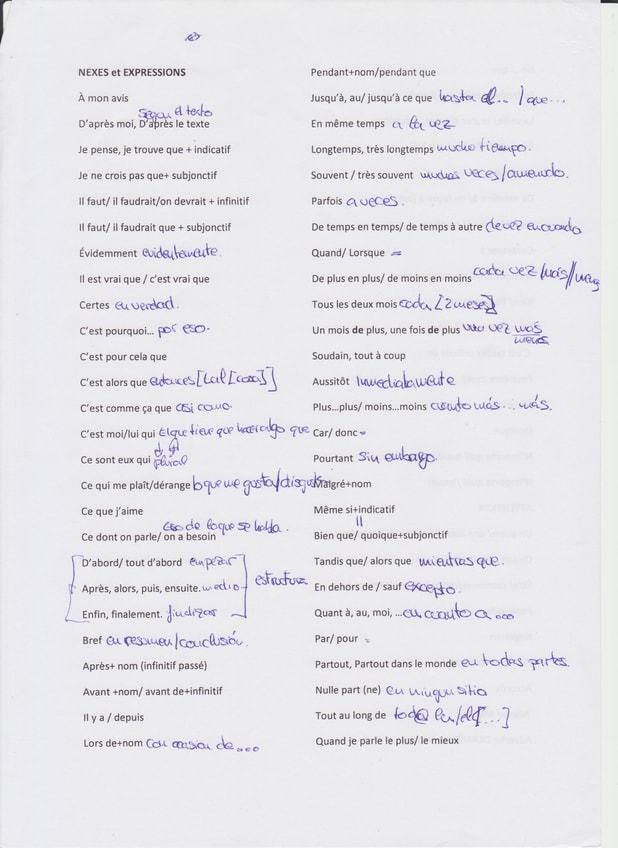 NEXES et EXPRESSIONS
À mon avis
Según el texto
D'après moi, D'après le texte
Je pense, je trouve que + indicatif
Je ne crois pas que+ subjonctif
Il faut/ il faudrait/on devrait + infinitif
Il faut/ il faudrait que + subjonctif
Évidemment evidentemente.
Il est vrai que / c'est vrai que
Certes en verdad.
C'est pourquoi... por eso.
C'est pour cela que
C'est alors que entonces [tal [cosa]]
C'est comme ça que así como
C'est moi/lui qui El que tiene que hacer algo que
Ce sont eux qui plural
Ce qui me plaît/dérange lo que me gusta/disgusta
Ce que j'aime
Eso de lo que se habla.
Ce dont on parle/ on a besoin
D'abord/ tout d'abord empezar
Après, alors, puis, ensuite. medio estructura
Enfin, finalement. finalizar
Bref en resumen/conclusión.
Après+ nom (infinitif passé)
Avant +nom/ avant de+infinitif
Il y a / depuis
Lors de+nom con ocasión de...
Pendant+nom/pendant que
Jusqu'à, au/ jusqu'à ce que hasta el... / que...
En même temps a la vez
Longtemps, très longtemps mucho tiempo.
Souvent / très souvent muchas veces/amenudo.
Parfois a veces.
De temps en temps/ de temps à autre de vez en cuando
Quand/ Lorsque =
De plus en plus/ de moins en moins cada vez/más//menos
Tous les deux mois cada [2 meses]
Un mois de plus, une fois de plus una vez más
menos
Soudain, tout à coup
Aussitôt Inmediatamente
Plus...plus/ moins...moins cuanto más... más.
Car/ donc =
Pourtant sin embargo.
Malgré+nom
Même si+indicatif
=
Bien que/ quoique+subjonctif
Tandis que/ alors que mientras que.
En dehors de / sauf excepto.
Quant à, au, moi, ...en cuanto a...
Par/ pour =
Partout, Partout dans le monde en todas partes.
Nulle part (ne) en ningun sitio
Tout au long de tod@ la/el [...]
Quand je parle le plus/ le mieux